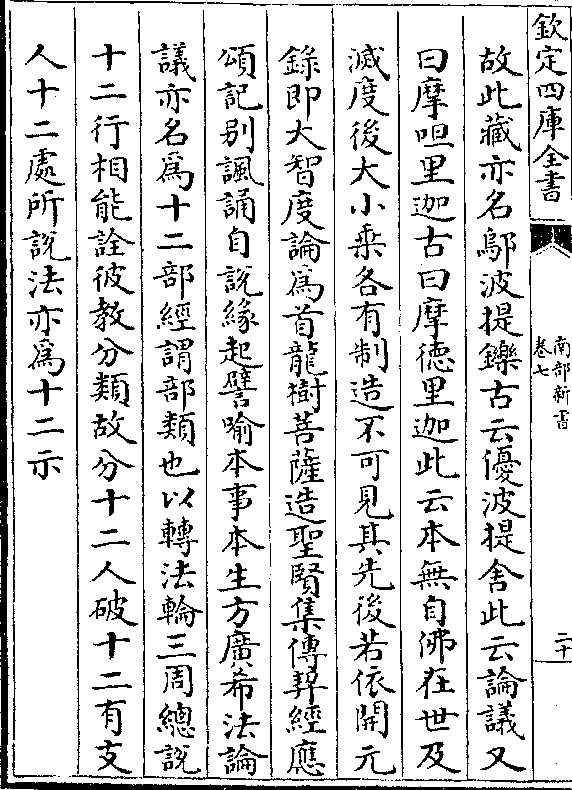 欽定四庫全書
南部新書
卷七
二十
故此藏亦名鄔波提鑠古云優波提舍此云論議又
曰摩呾里迦古曰摩德里迦此云本無自佛在世及
滅度後大小乘各有制造不可見其先後若依開元
錄即大智度論為首龍樹菩薩造聖賢集傳契經應
頌記别諷誦自說緣起譬喻本事本生方廣希法論
議亦名為十二部經謂部類也以轉法輪三周總說
十二行相能詮彼教分類故分十二人破十二有支
人十二處所說法亦為十二示